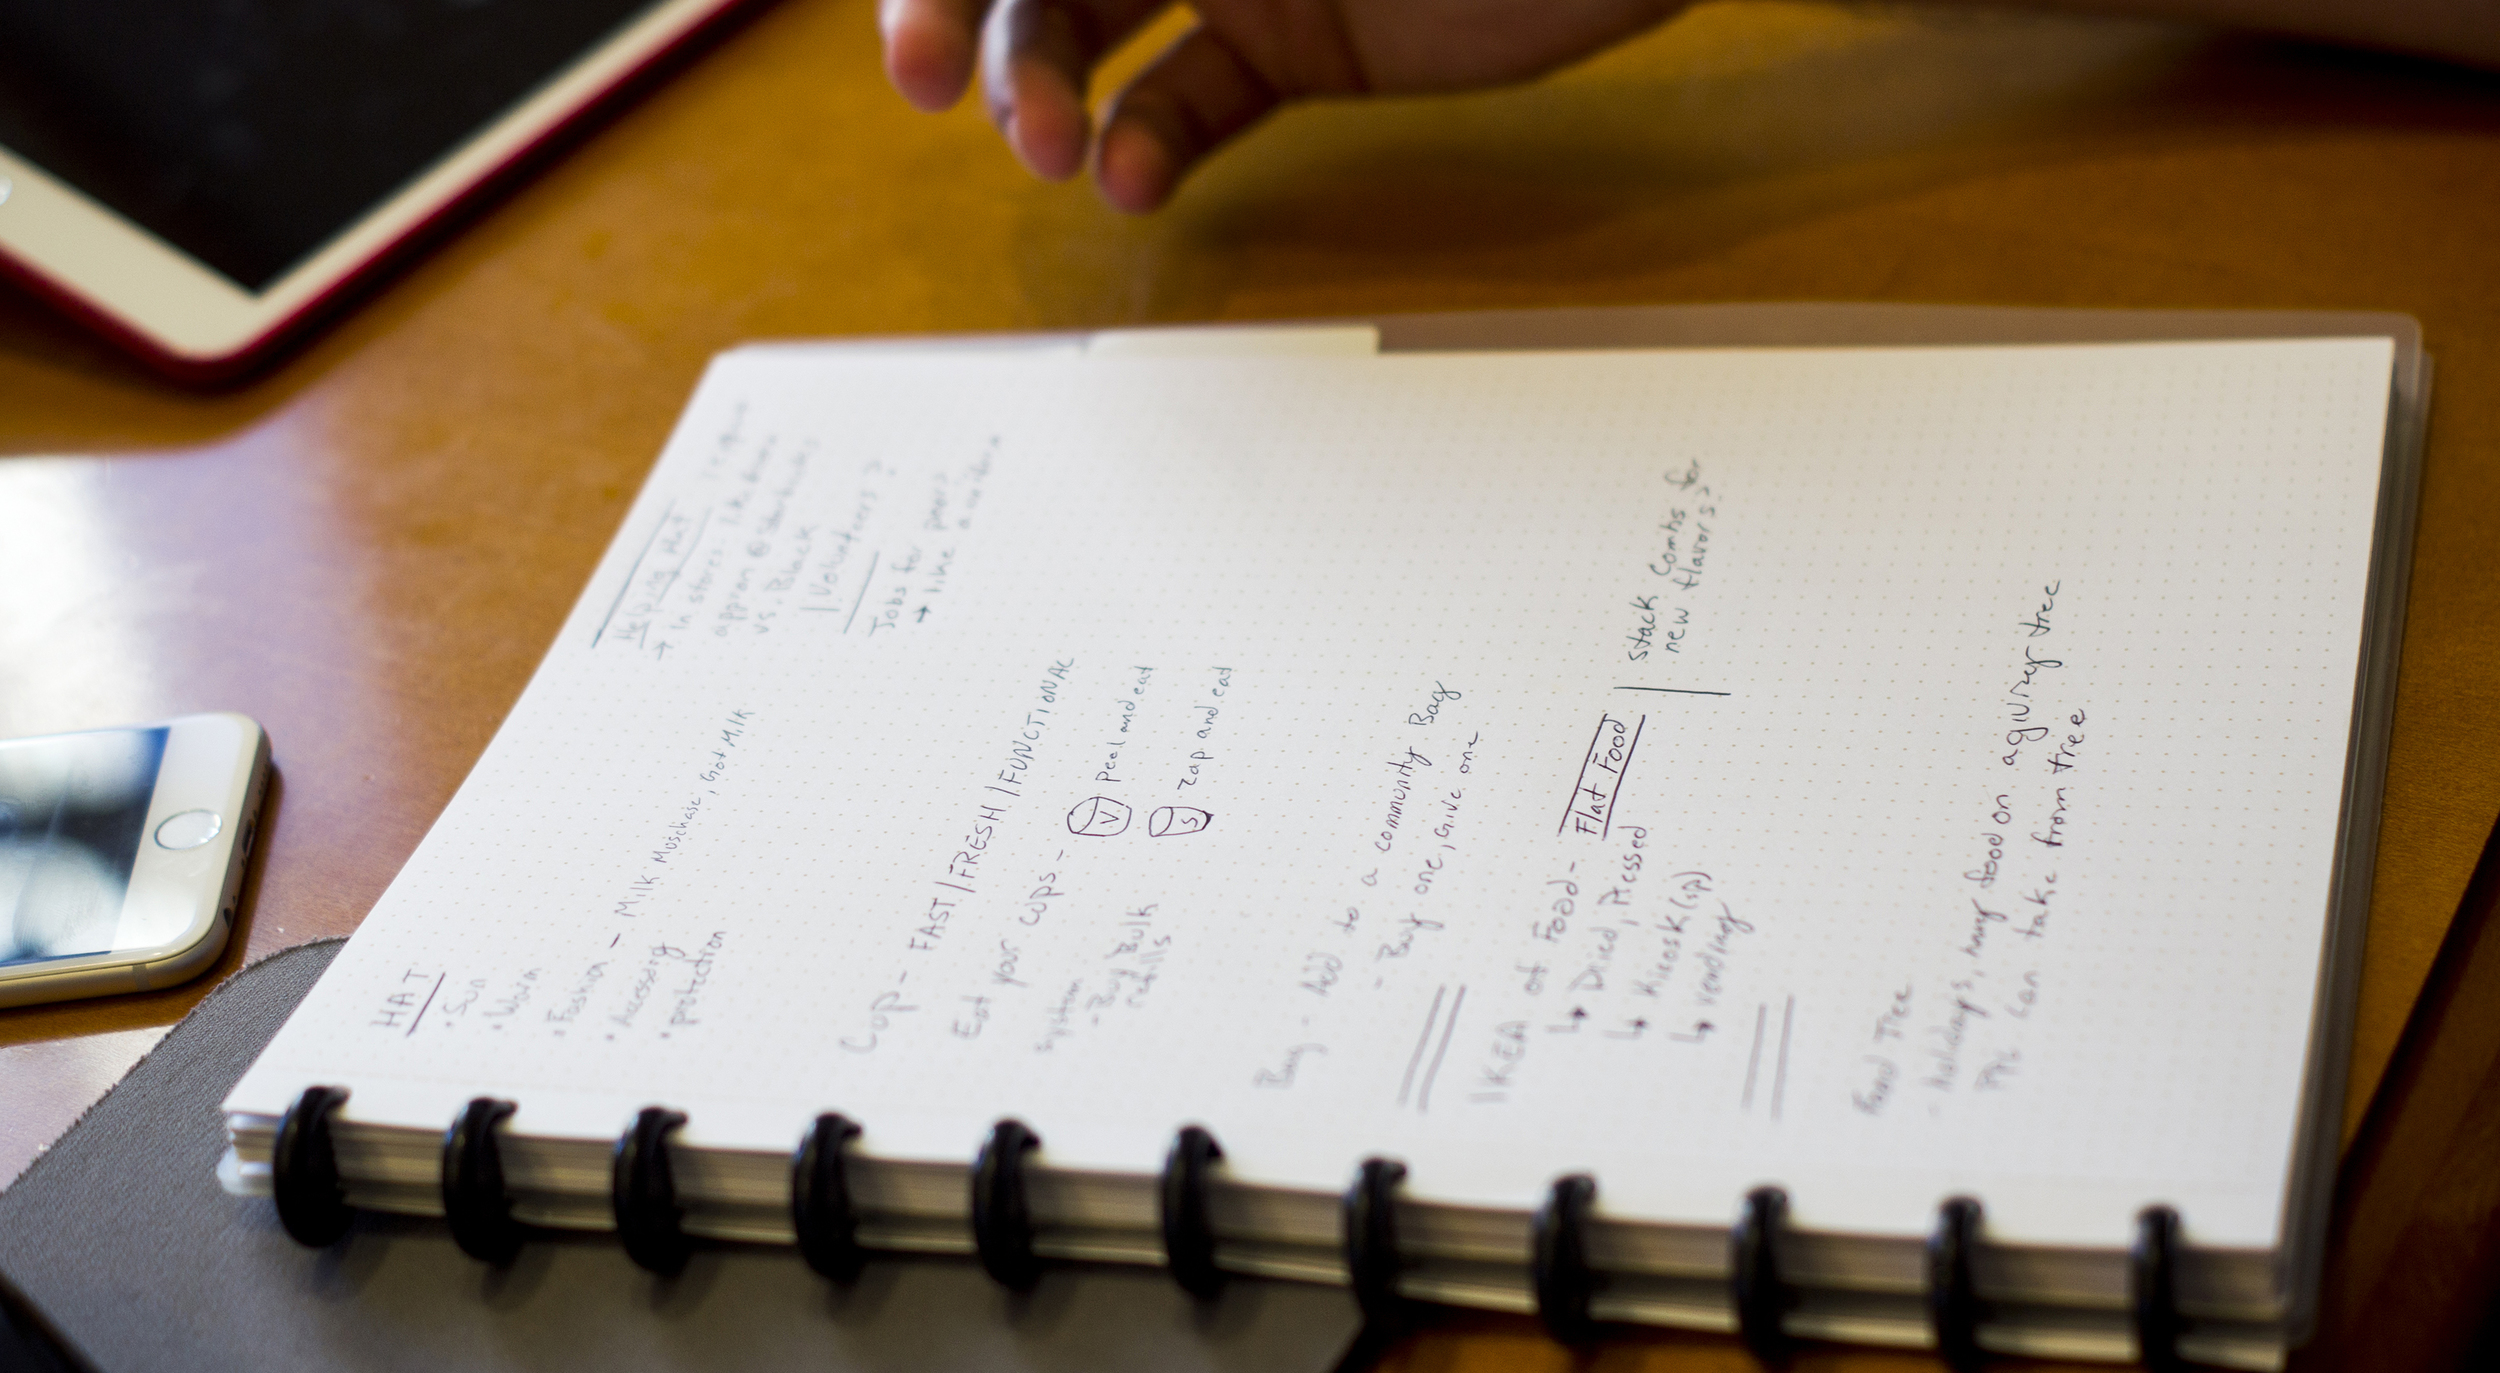 HAT
• Sun
• Warm
• Fashion - Milk Mustache, Got Milk
• Accessory
• protection
Helping Hat
→ In stores. like
appron @ Starbucks
vs. Black
| Volunteers?
Jobs for
→ like
Cup - FAST/FRESH/FUNCTIONAL
Eat your cups - V peel and eat
system S zap and eat
- Buy Bulk
refills
Bag - Add to a community Bag
- Buy one, Give one
IKEA of Food - Flat Food | Stack Combs for
new flavors?
↳ Dried, Pressed
↳ Kieosk (sp)
↳ vending
Food Tree
- Holidays, hang food on a giving tree
Ppl can take from tree